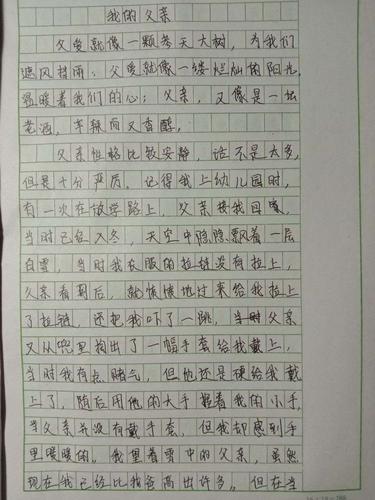 我的父亲
父爱就像一颗参天大树，为我们
遮风挡雨；父爱就像一缕灿烂的阳光，
温暖着我们的心；父亲，又像是一坛
老酒，辛辣而又香醇，
父亲性格比较安静，话不是太多，
但是十分严厉。记得我上幼儿园时，
有一次在放学路上，父亲接我回家，
当时已经入冬，天空中隐隐飘着一层
白雪，当时我衣服的拉链没有拉上，
父亲看到后，就慌慌地过来给我拉上
了拉链，还把我吓了一跳，当时父亲
又从兜里掏出了一幅手套给我戴上，
当时我有点赌气，但他还是硬给我戴
上了，随后用他的大手握着我的小手，
当父亲并没有戴手套，但我却感到手
里暖暖的。我望着雪中的父亲，虽然
现在我已经比我爸高出许多，但在当